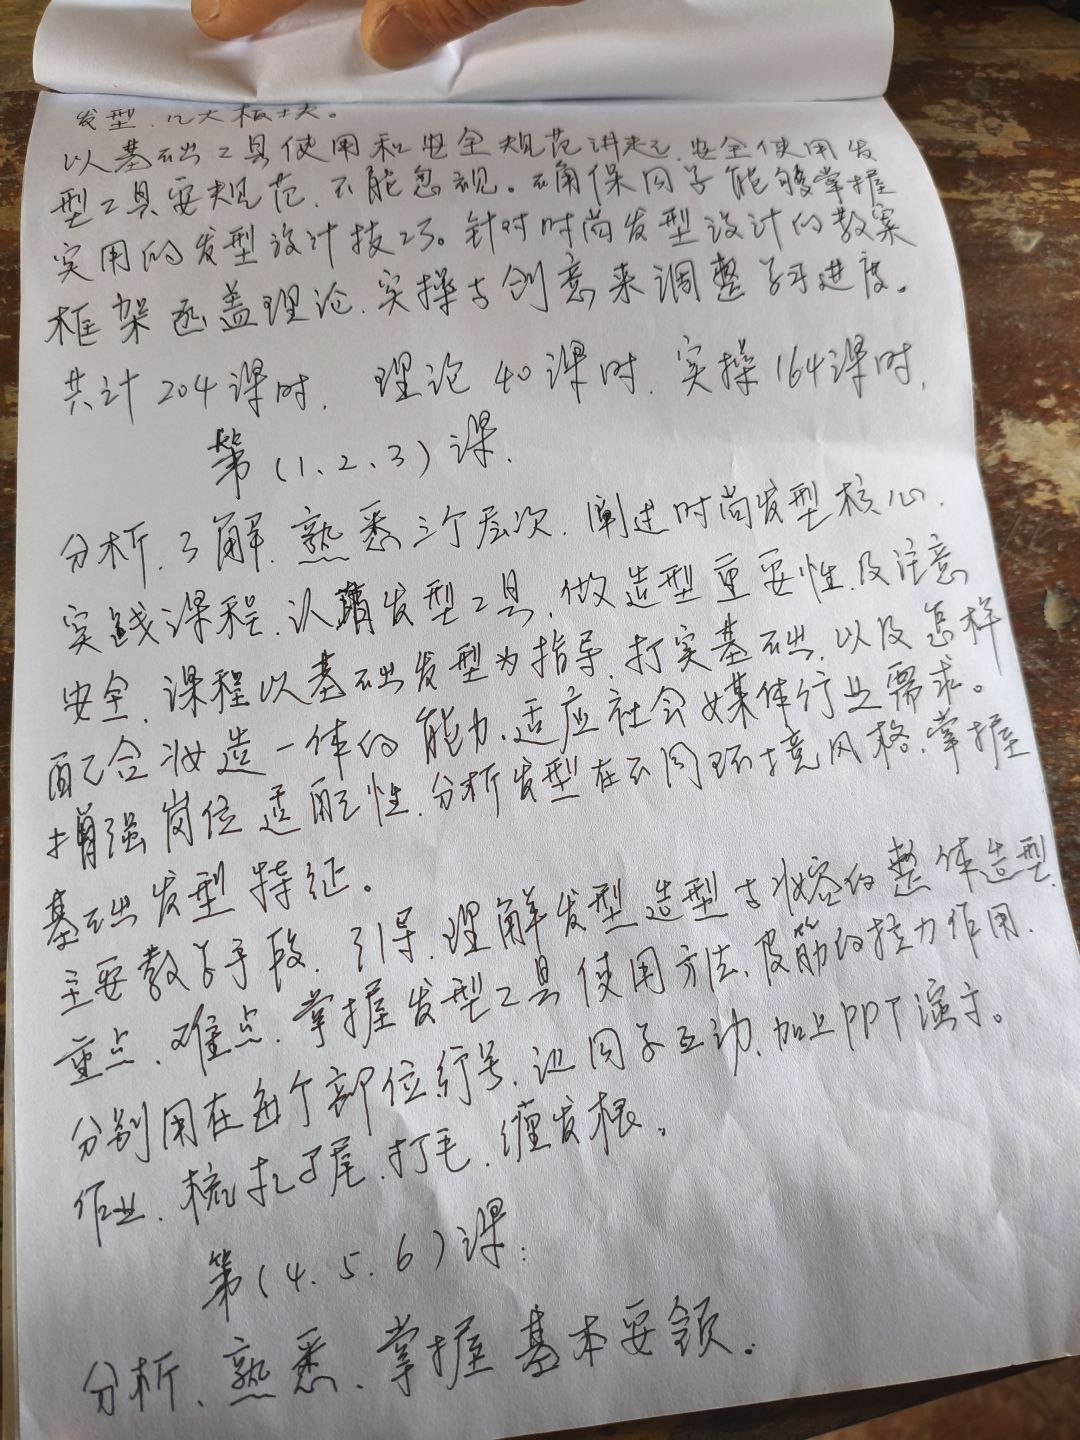 发型、几大板块。
以基础工具使用和安全规范讲起、安全使用发
型工具要规范、不能忽视。确保同学能够掌握
实用的发型设计技巧。针对时尚发型设计的教案
框架函盖理论、实操与创意来调整学习进度。
共计204课时、理论40课时、实操164课时、
第(1、2、3)课、
分析、了解、熟悉三个层次、阐述时尚发型核心、
实践课程、认清发型工具、做造型重要性、及注意
安全、课程以基础发型为指导、打实基础、以及怎样
配合妆造一体的能力、适应社会媒体行业需求。
增强岗位适配性、分析发型在不同环境风格、掌握
基础发型特征。
主要教学手段、引导、理解发型造型与妆容的整体造型、
重点、难点、掌握发型工具使用方法、皮筋的拉力作用、
分别用在每个部位、同学互动、加上PPT演示。
作业、梳扎马尾、打毛、缠发根。
第(4、5、6)课:
分析、熟悉、掌握基本要领。